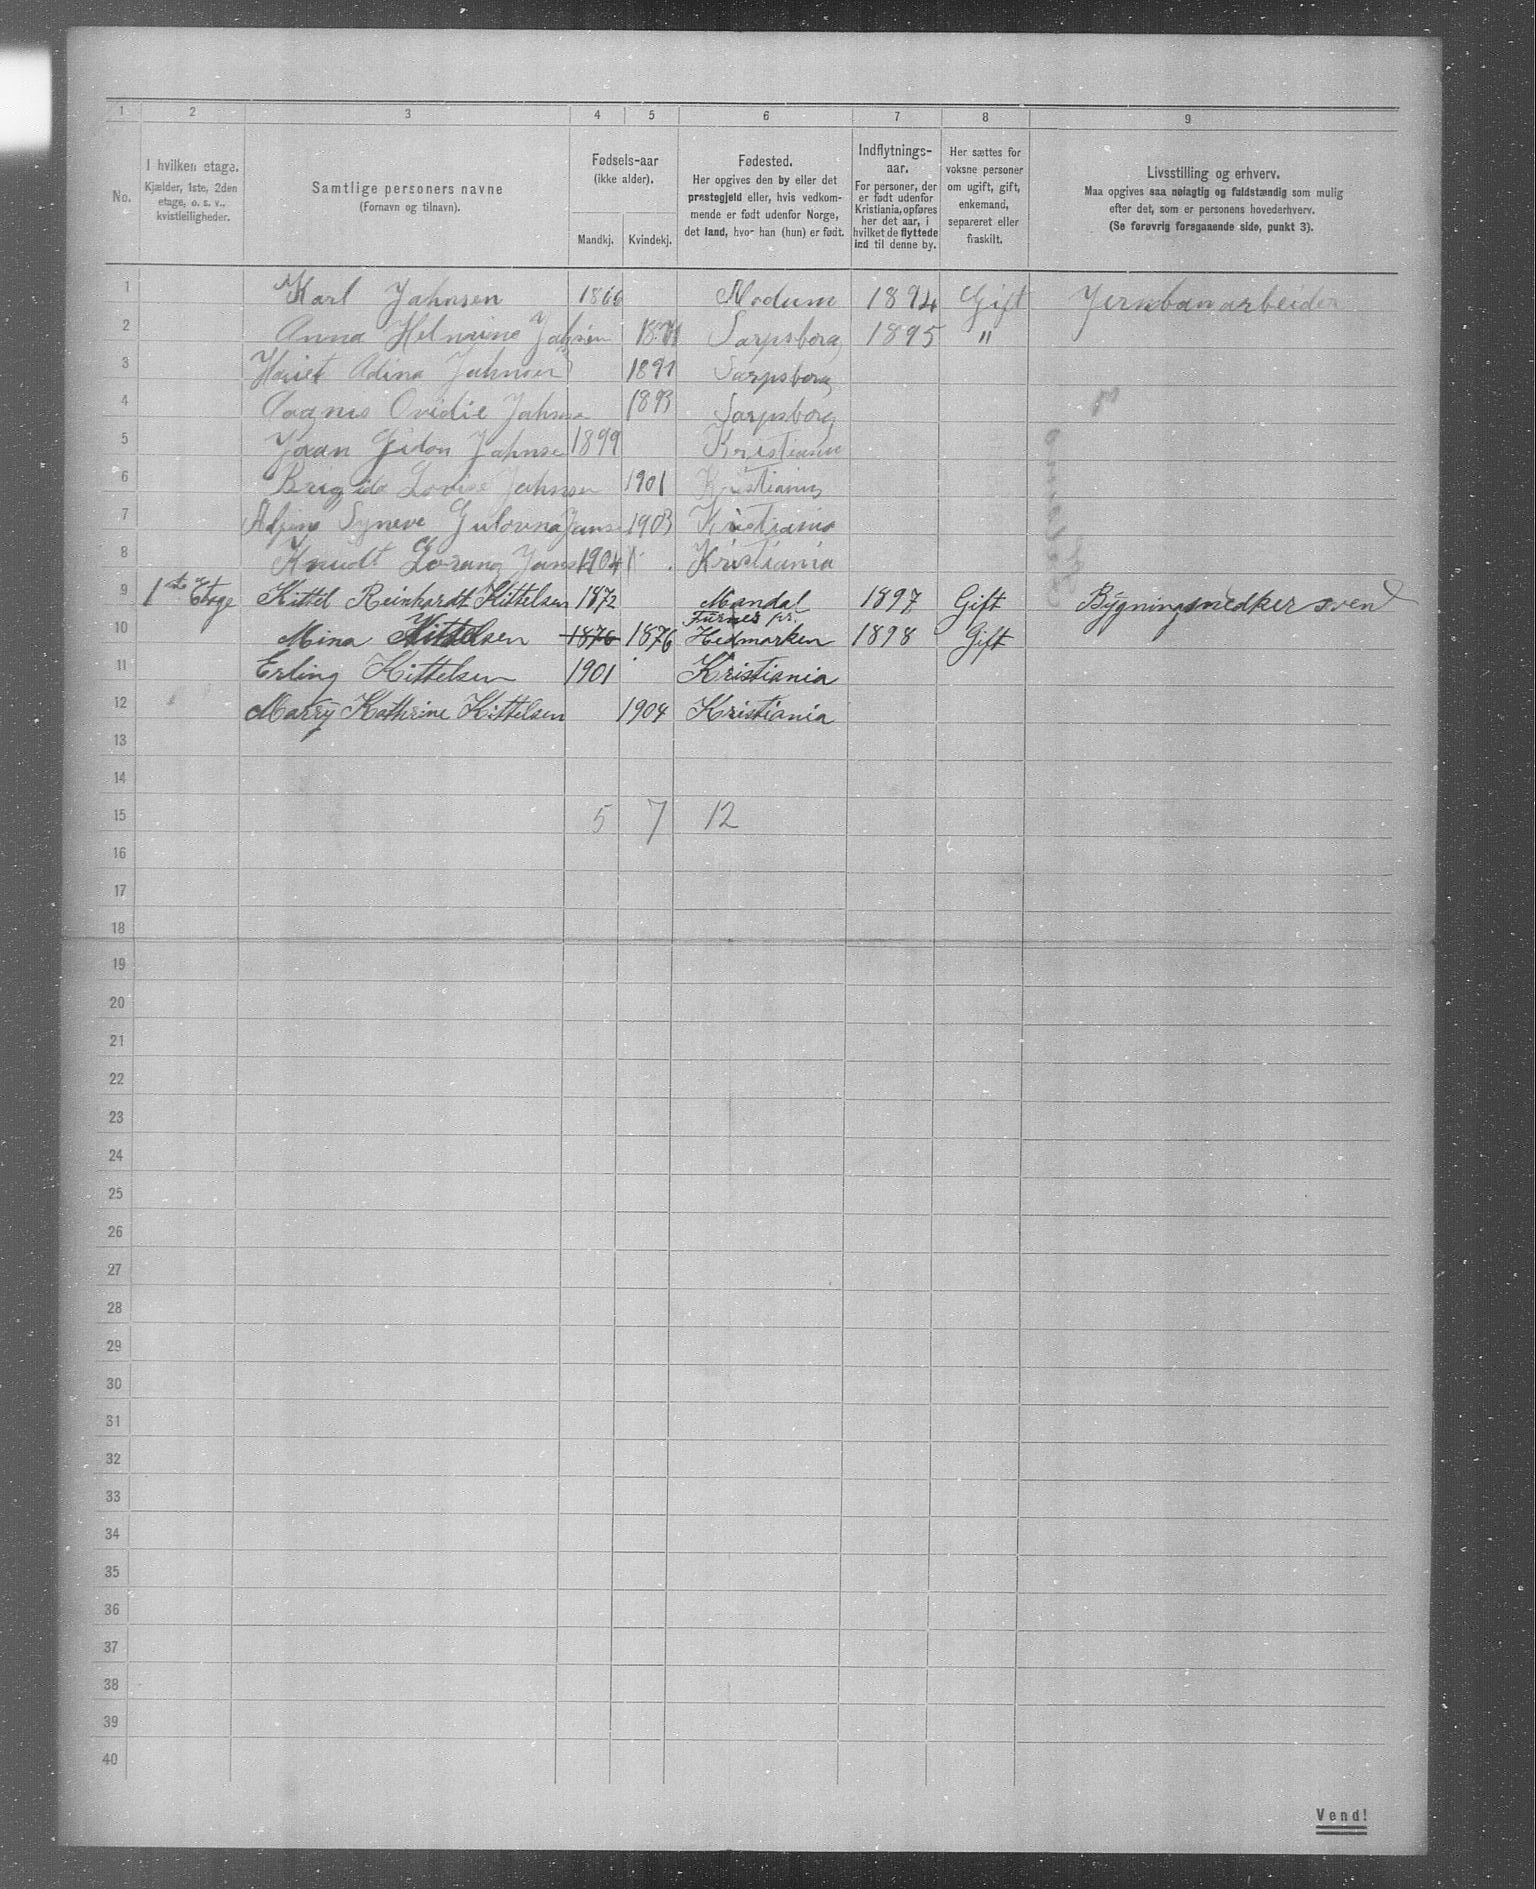 1 2 3 4 5 6 7 8 9
No.
I hvilken etage.
Kjælder, 1ste, 2den
etage, o. s. v.,
kvistleiligheder.
Samtlige personers navne
(Fornavn og tilnavn).
Fødsels-aar
(ikke alder).
Mandkj. Kvindekj.
Fødested.
Her opgives den by eller det
prestegjeld eller, hvis vedkom-
mende er født udenfor Norge,
det land, hvor han (hun) er født.
Indflytnings-
aar.
For personer, der
er født udenfor
Kristiania, opføres
her det aar, i
hvilket de flyttede
ind til denne by.
Her sættes for
voksne personer
om ugift, gift,
enkemand,
separeret eller
fraskilt.
Livsstilling og erhverv.
Maa opgives saa nøiagtig og fuldstændig som mulig
efter det, som er personens hovederhverv.
(Se forøvrig foregaaende side, punkt 3).
1 Karl Jahnsen 1866 Modum 1894 Gift Jernbanarbeider
2 Anna Helmine Jahnsen 1871 Sarpsborg 1895 "
3 Hariet Adina Jahnsen 1891 Sarpsborg
4 Aagnes Ovidie Jahnse 1893 Sarpsborg
5 Johan Gidon Jahnse 1899 Kristiania
6 Brigide Lovise Jahnsen 1901 Kristiania
7 Syneve Gulovna Jans 1903 Kristiania
8 Knudt Lorang Jans 1904 Kristiania
9 1ste Etage Kittel Reinhardt Kittelsen 1872 Mandal 1897 Gift Bygningsnedker svend
Furnes pr.
10 Mina Kittelsen 1876 1876 Hedmarken 1898 Gift
11 Erling Kittelsen 1901 Kristiania
12 Marry Kathrine Kittelsen 1904 Kristiania
13
14
15 5 7 12
16
17
18
19
20
21
22
23
24
25
26
27
28
29
30
31
32
33
34
35
36
37
38
39
40
Vend!